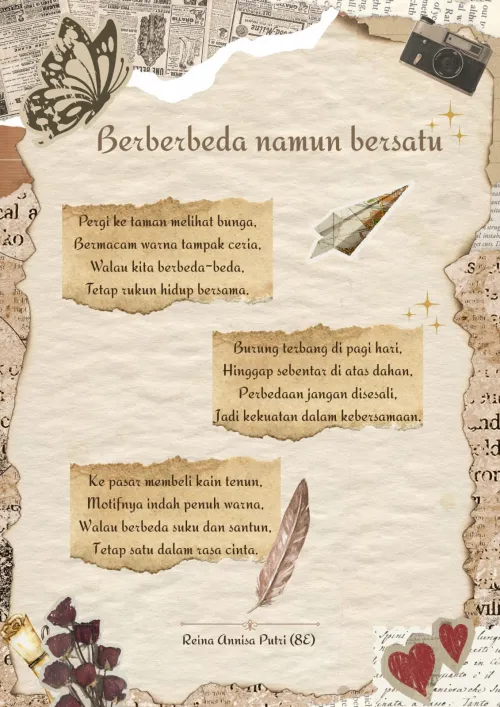 Berberbeda namun bersatu
Pergi ke taman melihat bunga,
Bermacam warna tampak ceria,
Walau kita berbeda-beda,
Tetap rukun hidup bersama.
Burung terbang di pagi hari,
Hinggap sebentar di atas dahan,
Perbedaan jangan disesali,
Jadi kekuatan dalam kebersamaan.
Ke pasar membeli kain tenun,
Motifnya indah penuh warna,
Walau berbeda suku dan santun,
Tetap satu dalam rasa cinta.
Reina Annisa Putri (8E)